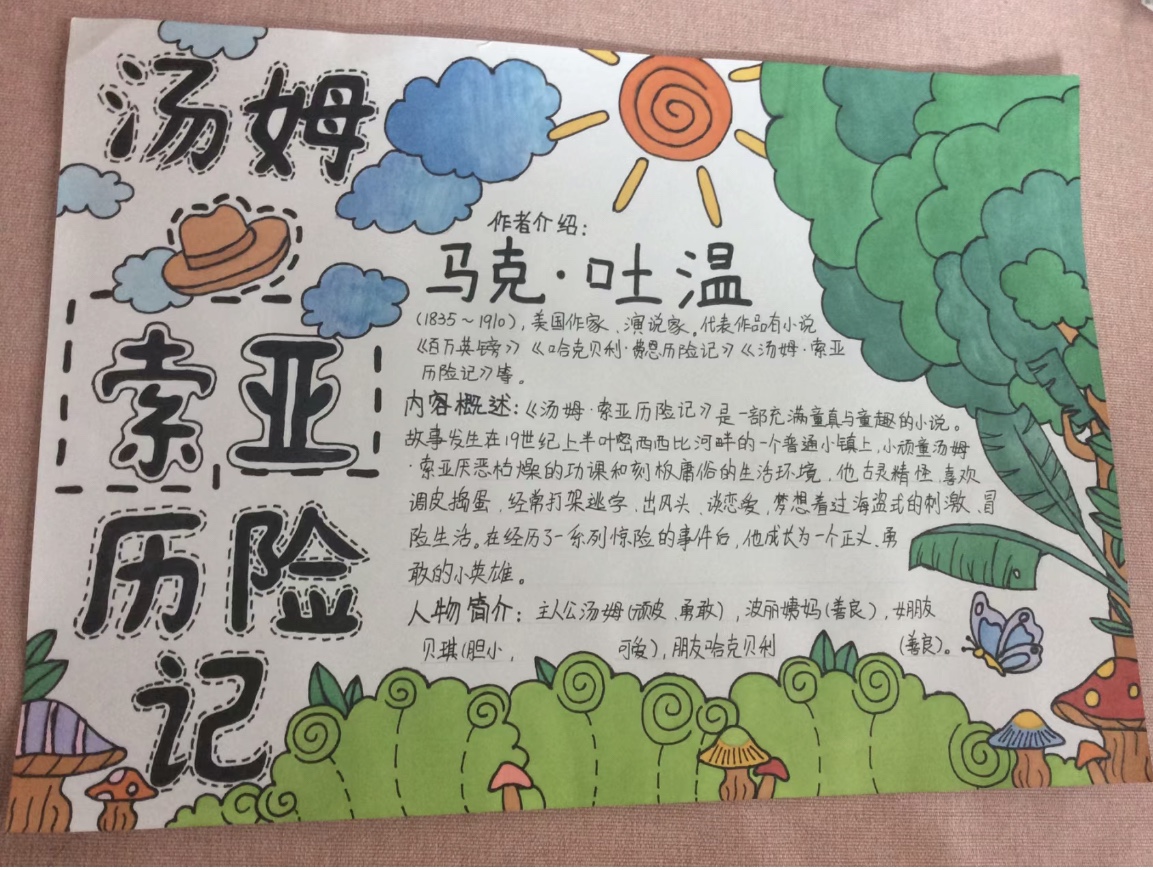 汤姆
索亚
历险
记
作者介绍：
马克·吐温
(1835～1910)，美国作家、演说家。代表作品有小说
《百万英镑》《哈克贝利·费恩历险记》《汤姆·索亚
历险记》等。
内容概述：《汤姆·索亚历险记》是一部充满童真与童趣的小说。
故事发生在19世纪上半叶密西西比河畔的一个普通小镇上，小顽童汤姆
·索亚厌恶枯燥的功课和刻板庸俗的生活环境，他古灵精怪、喜欢
调皮捣蛋，经常打架逃学、出风头、谈恋爱，梦想着过海盗式的刺激、冒
险生活。在经历了一系列惊险的事件后，他成长为一个正义、勇
敢的小英雄。
人物简介：主人公汤姆(顽皮、勇敢)，波丽姨妈(善良)，女朋友
贝琪(胆小， 可爱)，朋友哈克贝利 (善良)。